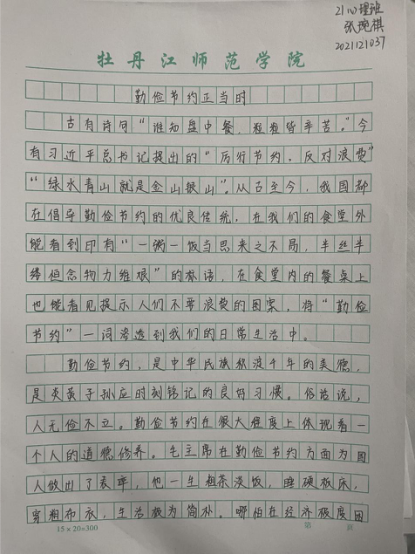 21心理班
张琬棋
2021121037
牡丹江师范学院
勤俭节约正当时
古有诗句“谁知盘中餐，粒粒皆辛苦。”今
有习近平总书记提出的“厉行节约，反对浪费”
“绿水青山就是金山银山”。从古至今，我国都
在倡导勤俭节约的优良传统，在我们的食堂外
能看到印有“一粥一饭当思来之不易，半丝半
缕恒念物力维艰”的标语，在食堂内的餐桌上
也能看见提示人们不要浪费的图案，将“勤俭
节约”一词渗透到我们的日常生活中。
勤俭节约，是中华民族积淀千年的美德，
是炎黄子孙应时刻铭记的良好习惯。俗话说，
人无俭不立。勤俭节约在很大程度上体现着一
个人的道德修养。毛主席在勤俭节约方面为国
人做出了表率，他一生粗茶淡饭，睡硬板床，
穿粗布衣，生活极为简朴。哪怕在经济极度困
15×20=300
第 页